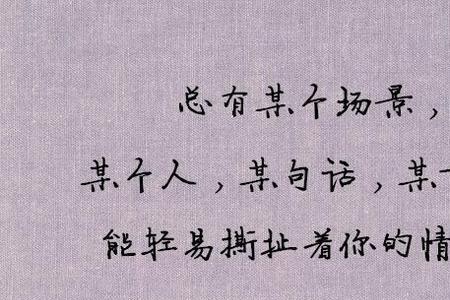 总有某个场景，
某个人，某句话，某
能轻易撕扯着你的情